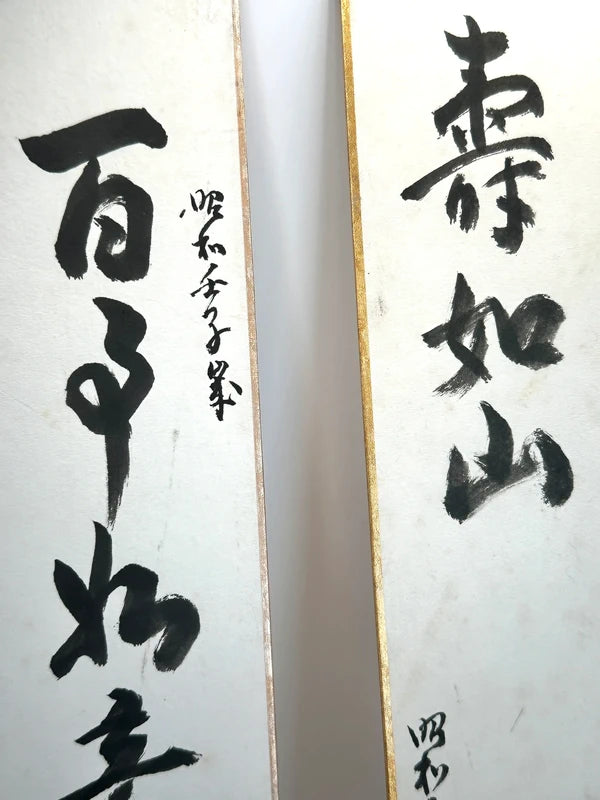 壽如山
昭和
昭和壬子嵗
百事如